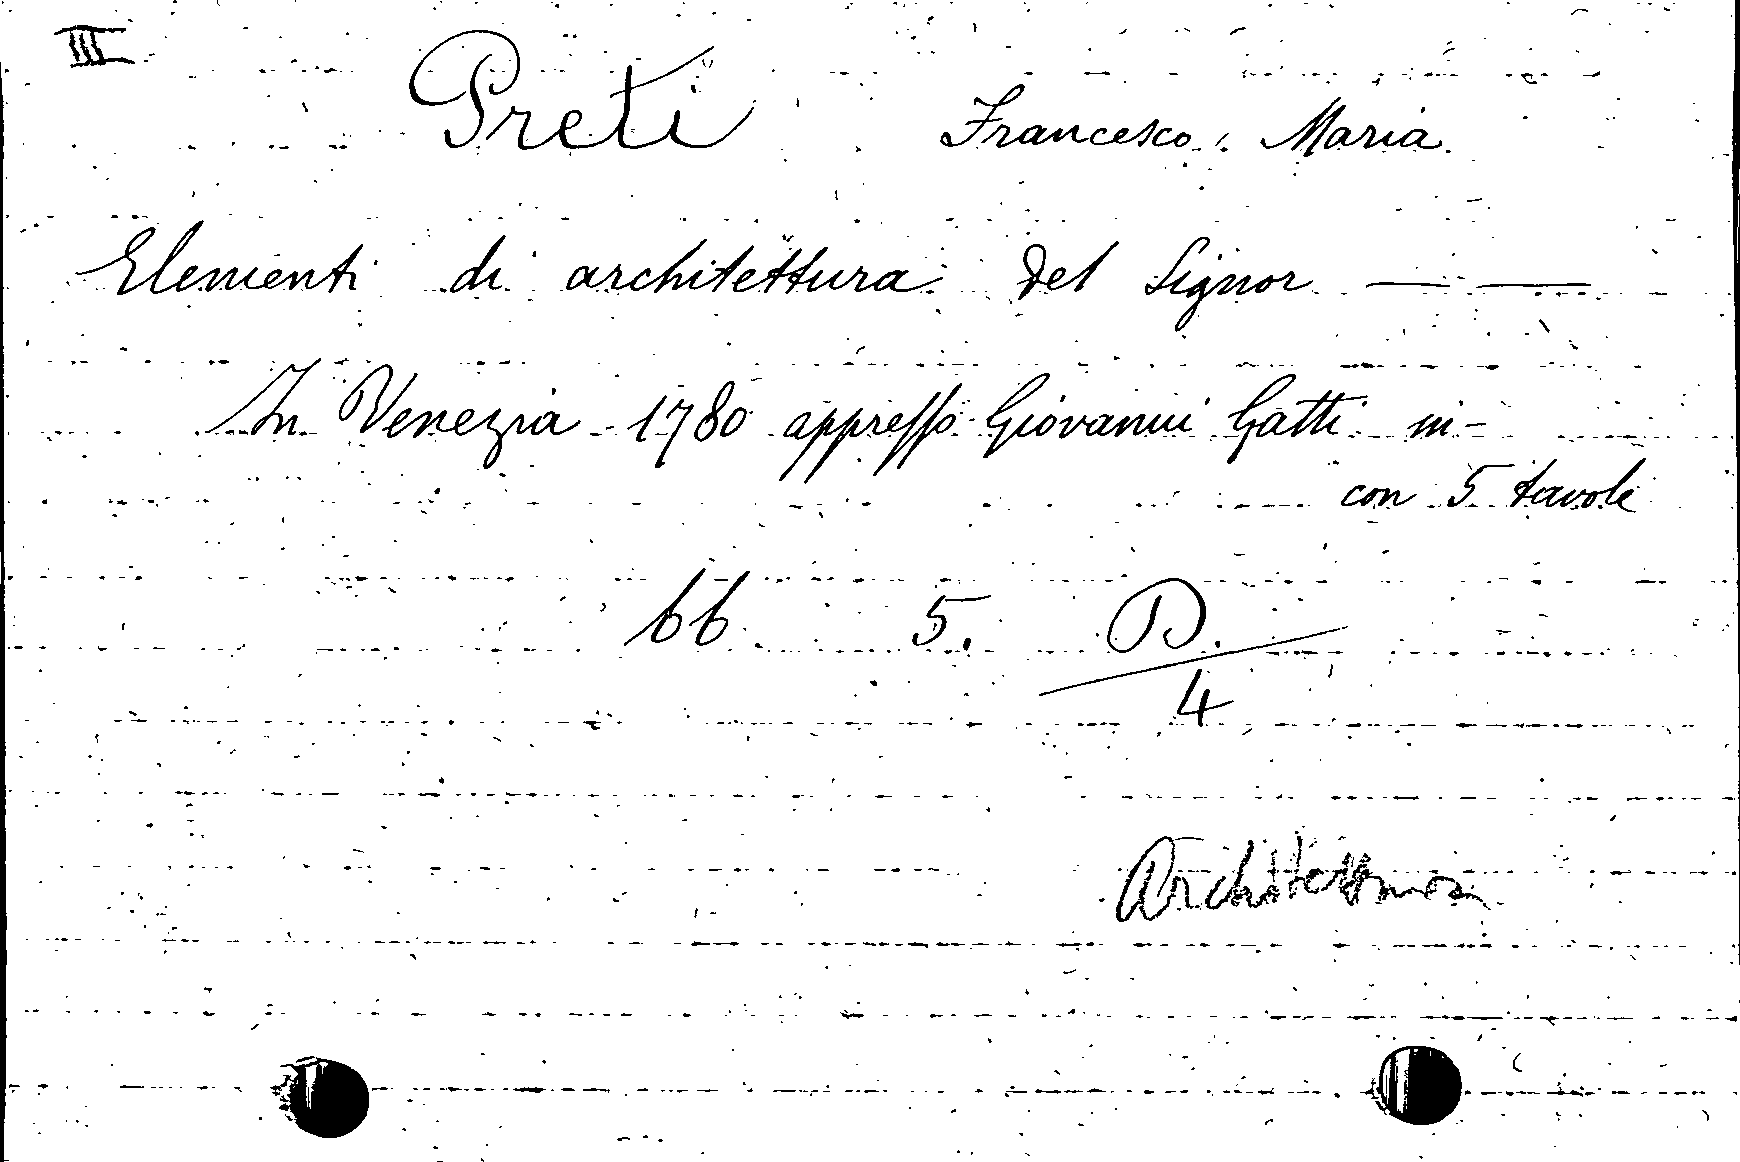 III
Preti Francesco Maria
Elementi di architettura del Signor — —
In Venezia 1780 appresso Giovanni Gatti in-
con 5 tavole
bb 5. D.
4
Architettura